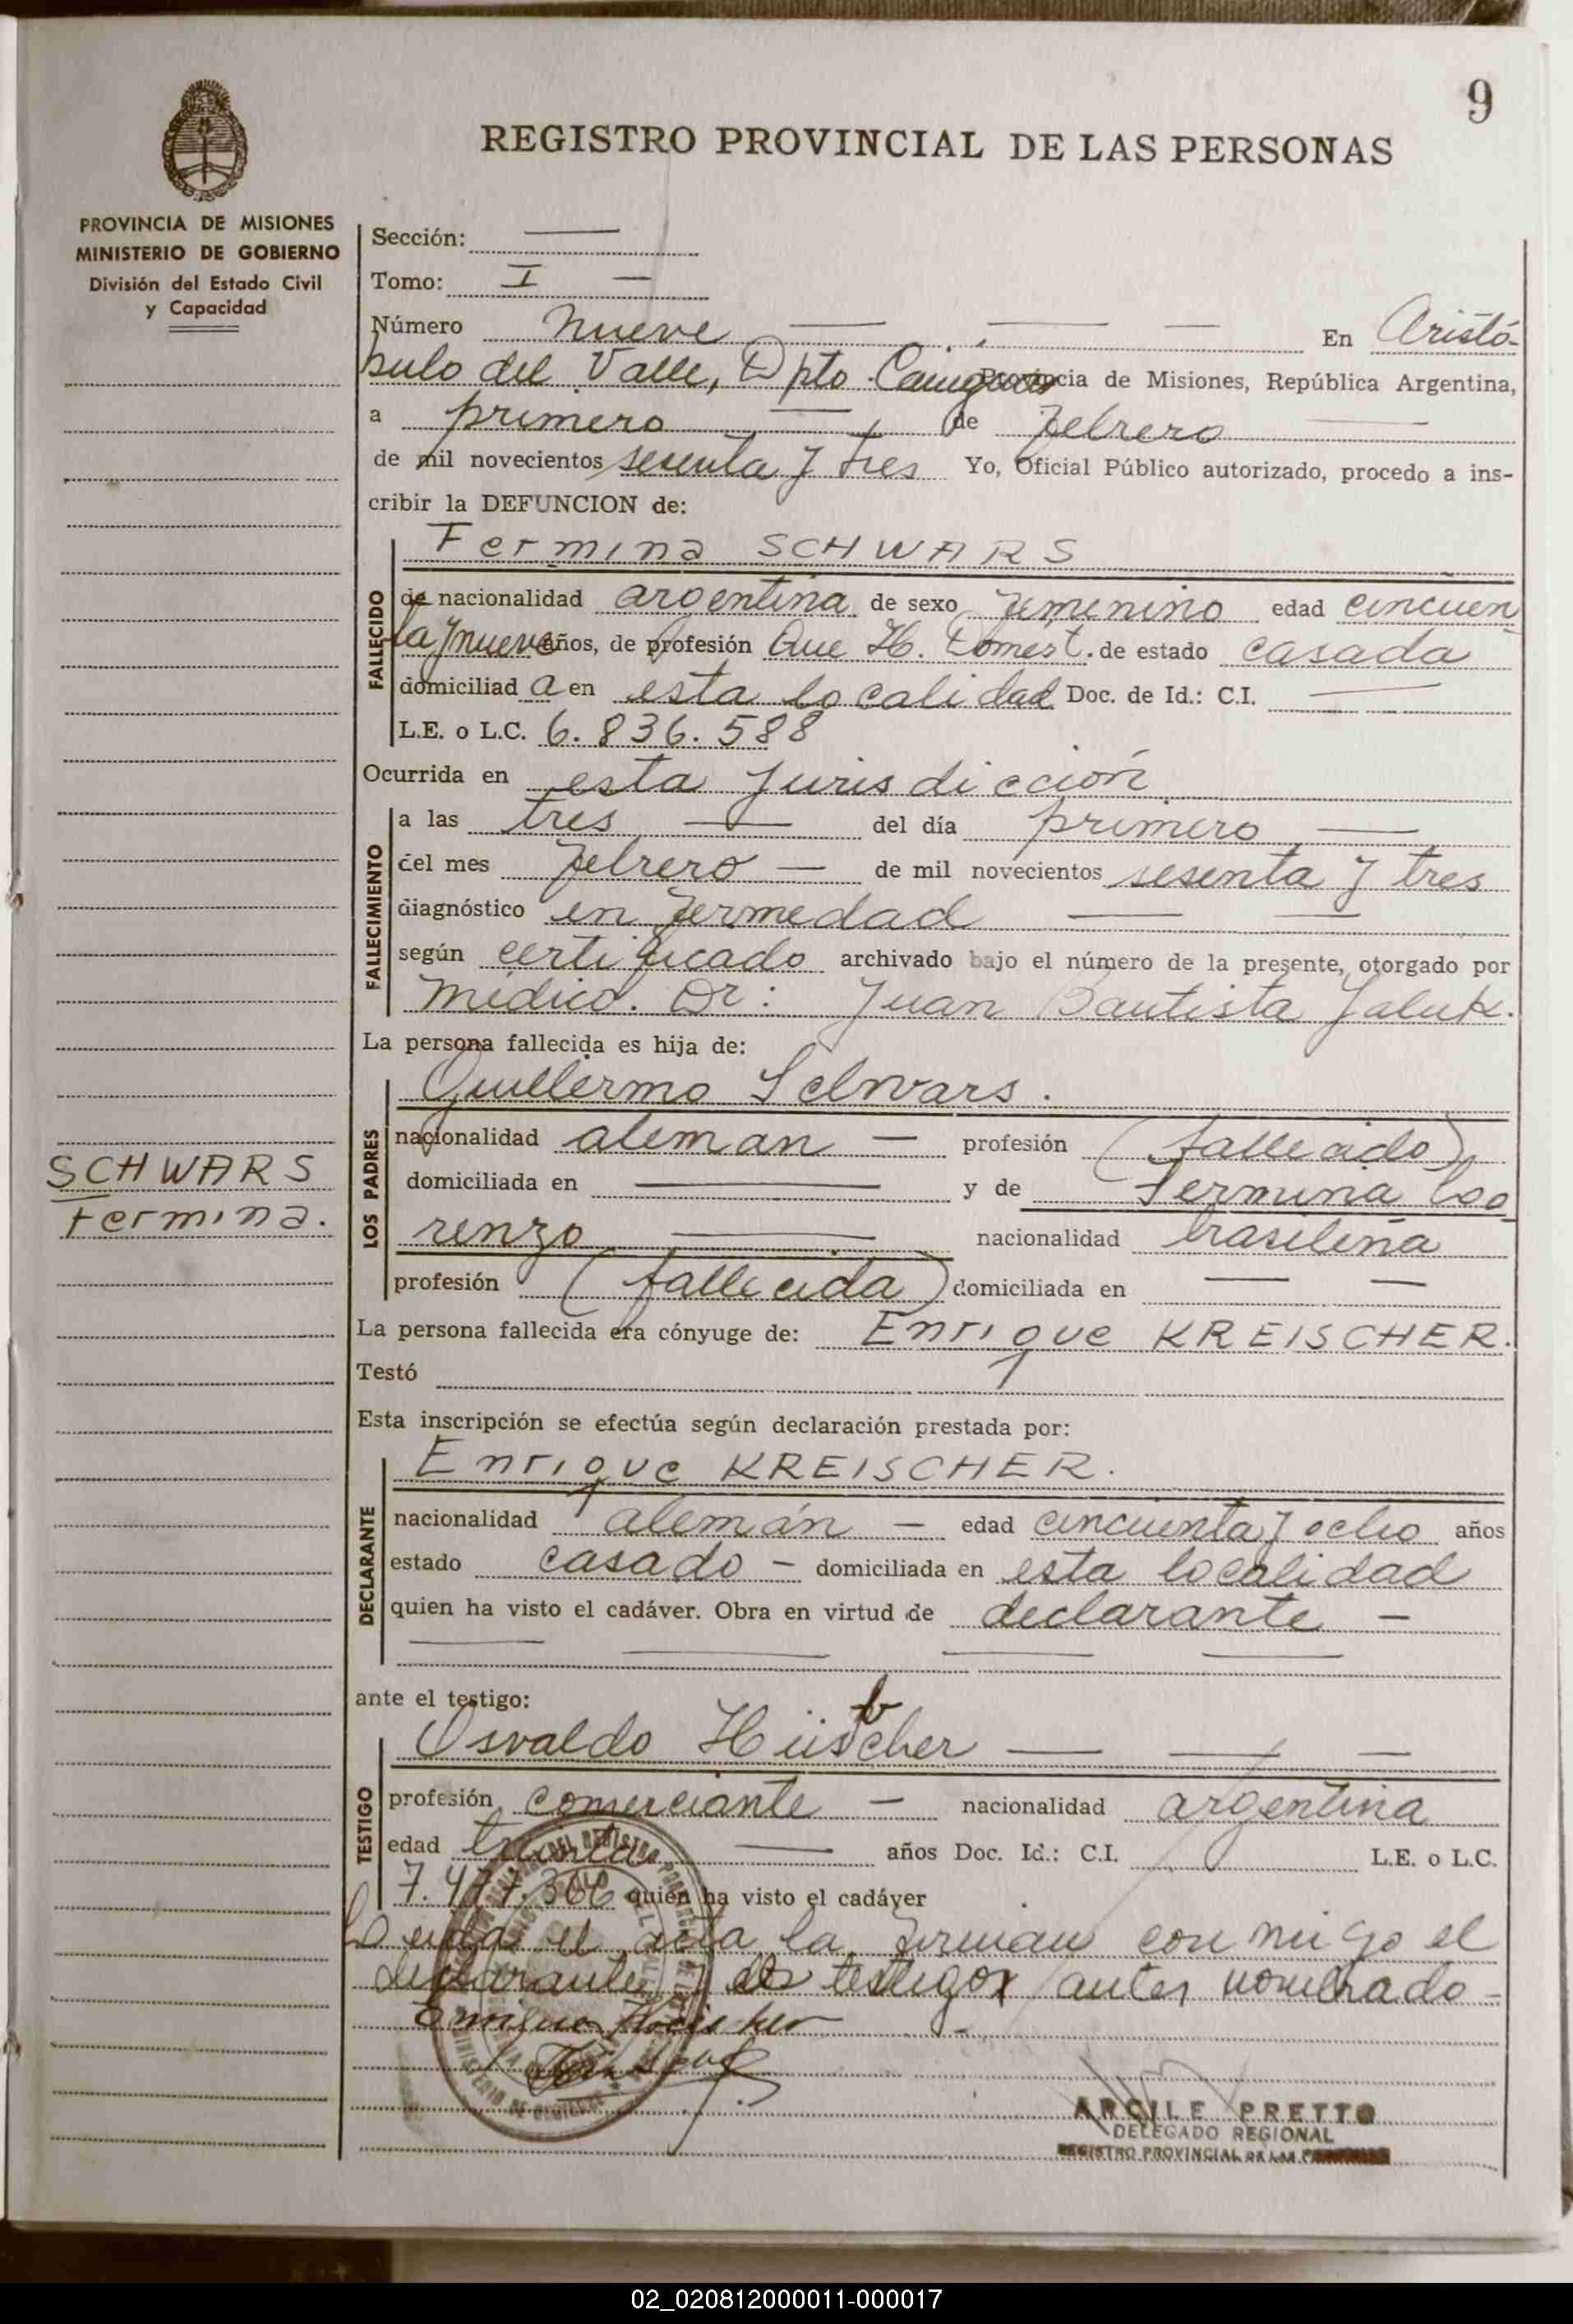 9
REGISTRO PROVINCIAL DE LAS PERSONAS
PROVINCIA DE MISIONES
MINISTERIO DE GOBIERNO
División del Estado Civil
y Capacidad
Sección: —
Tomo: I —
Número nueve — — — En Aristó-
bulo del Valle, Dpto Cainguas Provincia de Misiones, República Argentina,
a primero — de febrero —
de mil novecientos sesenta y tres Yo, Oficial Público autorizado, procedo a ins-
cribir la DEFUNCION de:
Fermina SCHWARS
FALLECIDO
de nacionalidad argentina de sexo femenino edad cincuen
ta y nueve años, de profesión Que H. Domest. de estado casada
domiciliad a en esta localidad Doc. de Id.: C.I. —
L.E. o L.C. 6.836.588
Ocurrida en esta Jurisdicción
FALLECIMIENTO
a las tres — del día primero —
del mes febrero — de mil novecientos sesenta y tres
diagnóstico enfermedad — —
según certificado archivado bajo el número de la presente, otorgado por
médico. Dr: Juan Bautista Jaluk.
La persona fallecida es hija de:
LOS PADRES
Guillermo Schwars.
nacionalidad aleman — profesión (fallecido)
domiciliada en — y de Fermina Loo
renzo — nacionalidad brasileña
profesión (fallecida) domiciliada en — —
SCHWARS
Fermina.
La persona fallecida era cónyuge de: Enrique KREISCHER.
Testó
Esta inscripción se efectúa según declaración prestada por:
DECLARANTE
Enrique KREISCHER.
nacionalidad alemán — edad cincuenta y ocho años
estado casado — domiciliada en esta localidad
quien ha visto el cadáver. Obra en virtud de declarante —
— — — —
ante el testigo:
TESTIGO
Osvaldo — — —
profesión comerciante — nacionalidad argentina
edad treinta — años Doc. Id.: C.I. L.E. o L.C.
quien ha visto el cadáver
Leida el acta la firman conmigo el
declarante y testigo antes nombrado -
ARCILE PRETTO
DELEGADO REGIONAL
REGISTRO PROVINCIAL DE LAS
02_020812000011-000017